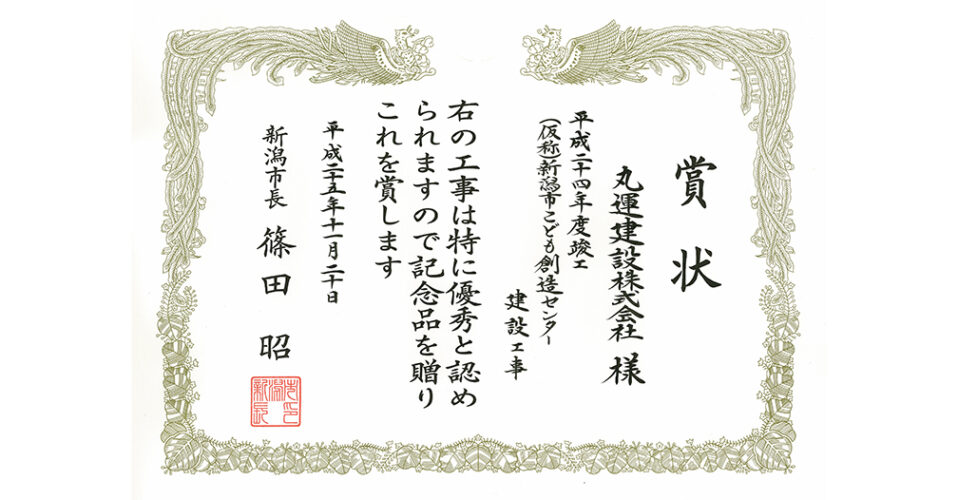 賞状
丸運建設株式会社 様
平成二十四年度竣工
(仮称)新潟市こども創造センター
建設工事
右の工事は特に優秀と認め
られますので記念品を贈り
これを賞します
平成二十五年十一月二十日
新潟市長 篠田 昭